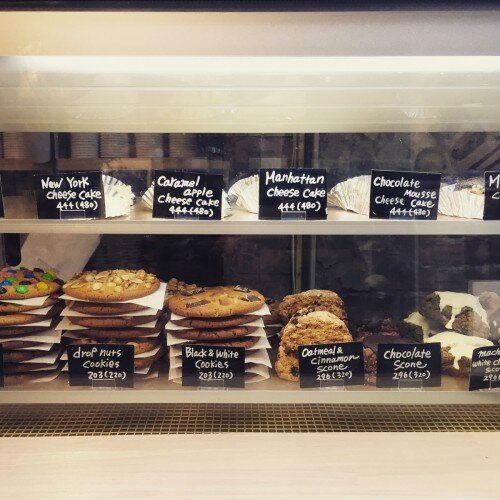 New York
cheese cake
444(480)
Caramel
apple
cheese cake
444(480)
Manhattan
cheese cake
444(480)
Chocolate
Mousse
cheese cake
444(480)
drop nuts
Cookies
203(220)
Black & White
Cookies
203(220)
Oatmeal &
Cinnamon
Scone
296(320)
Chocolate
Scone
296(320)
white ch